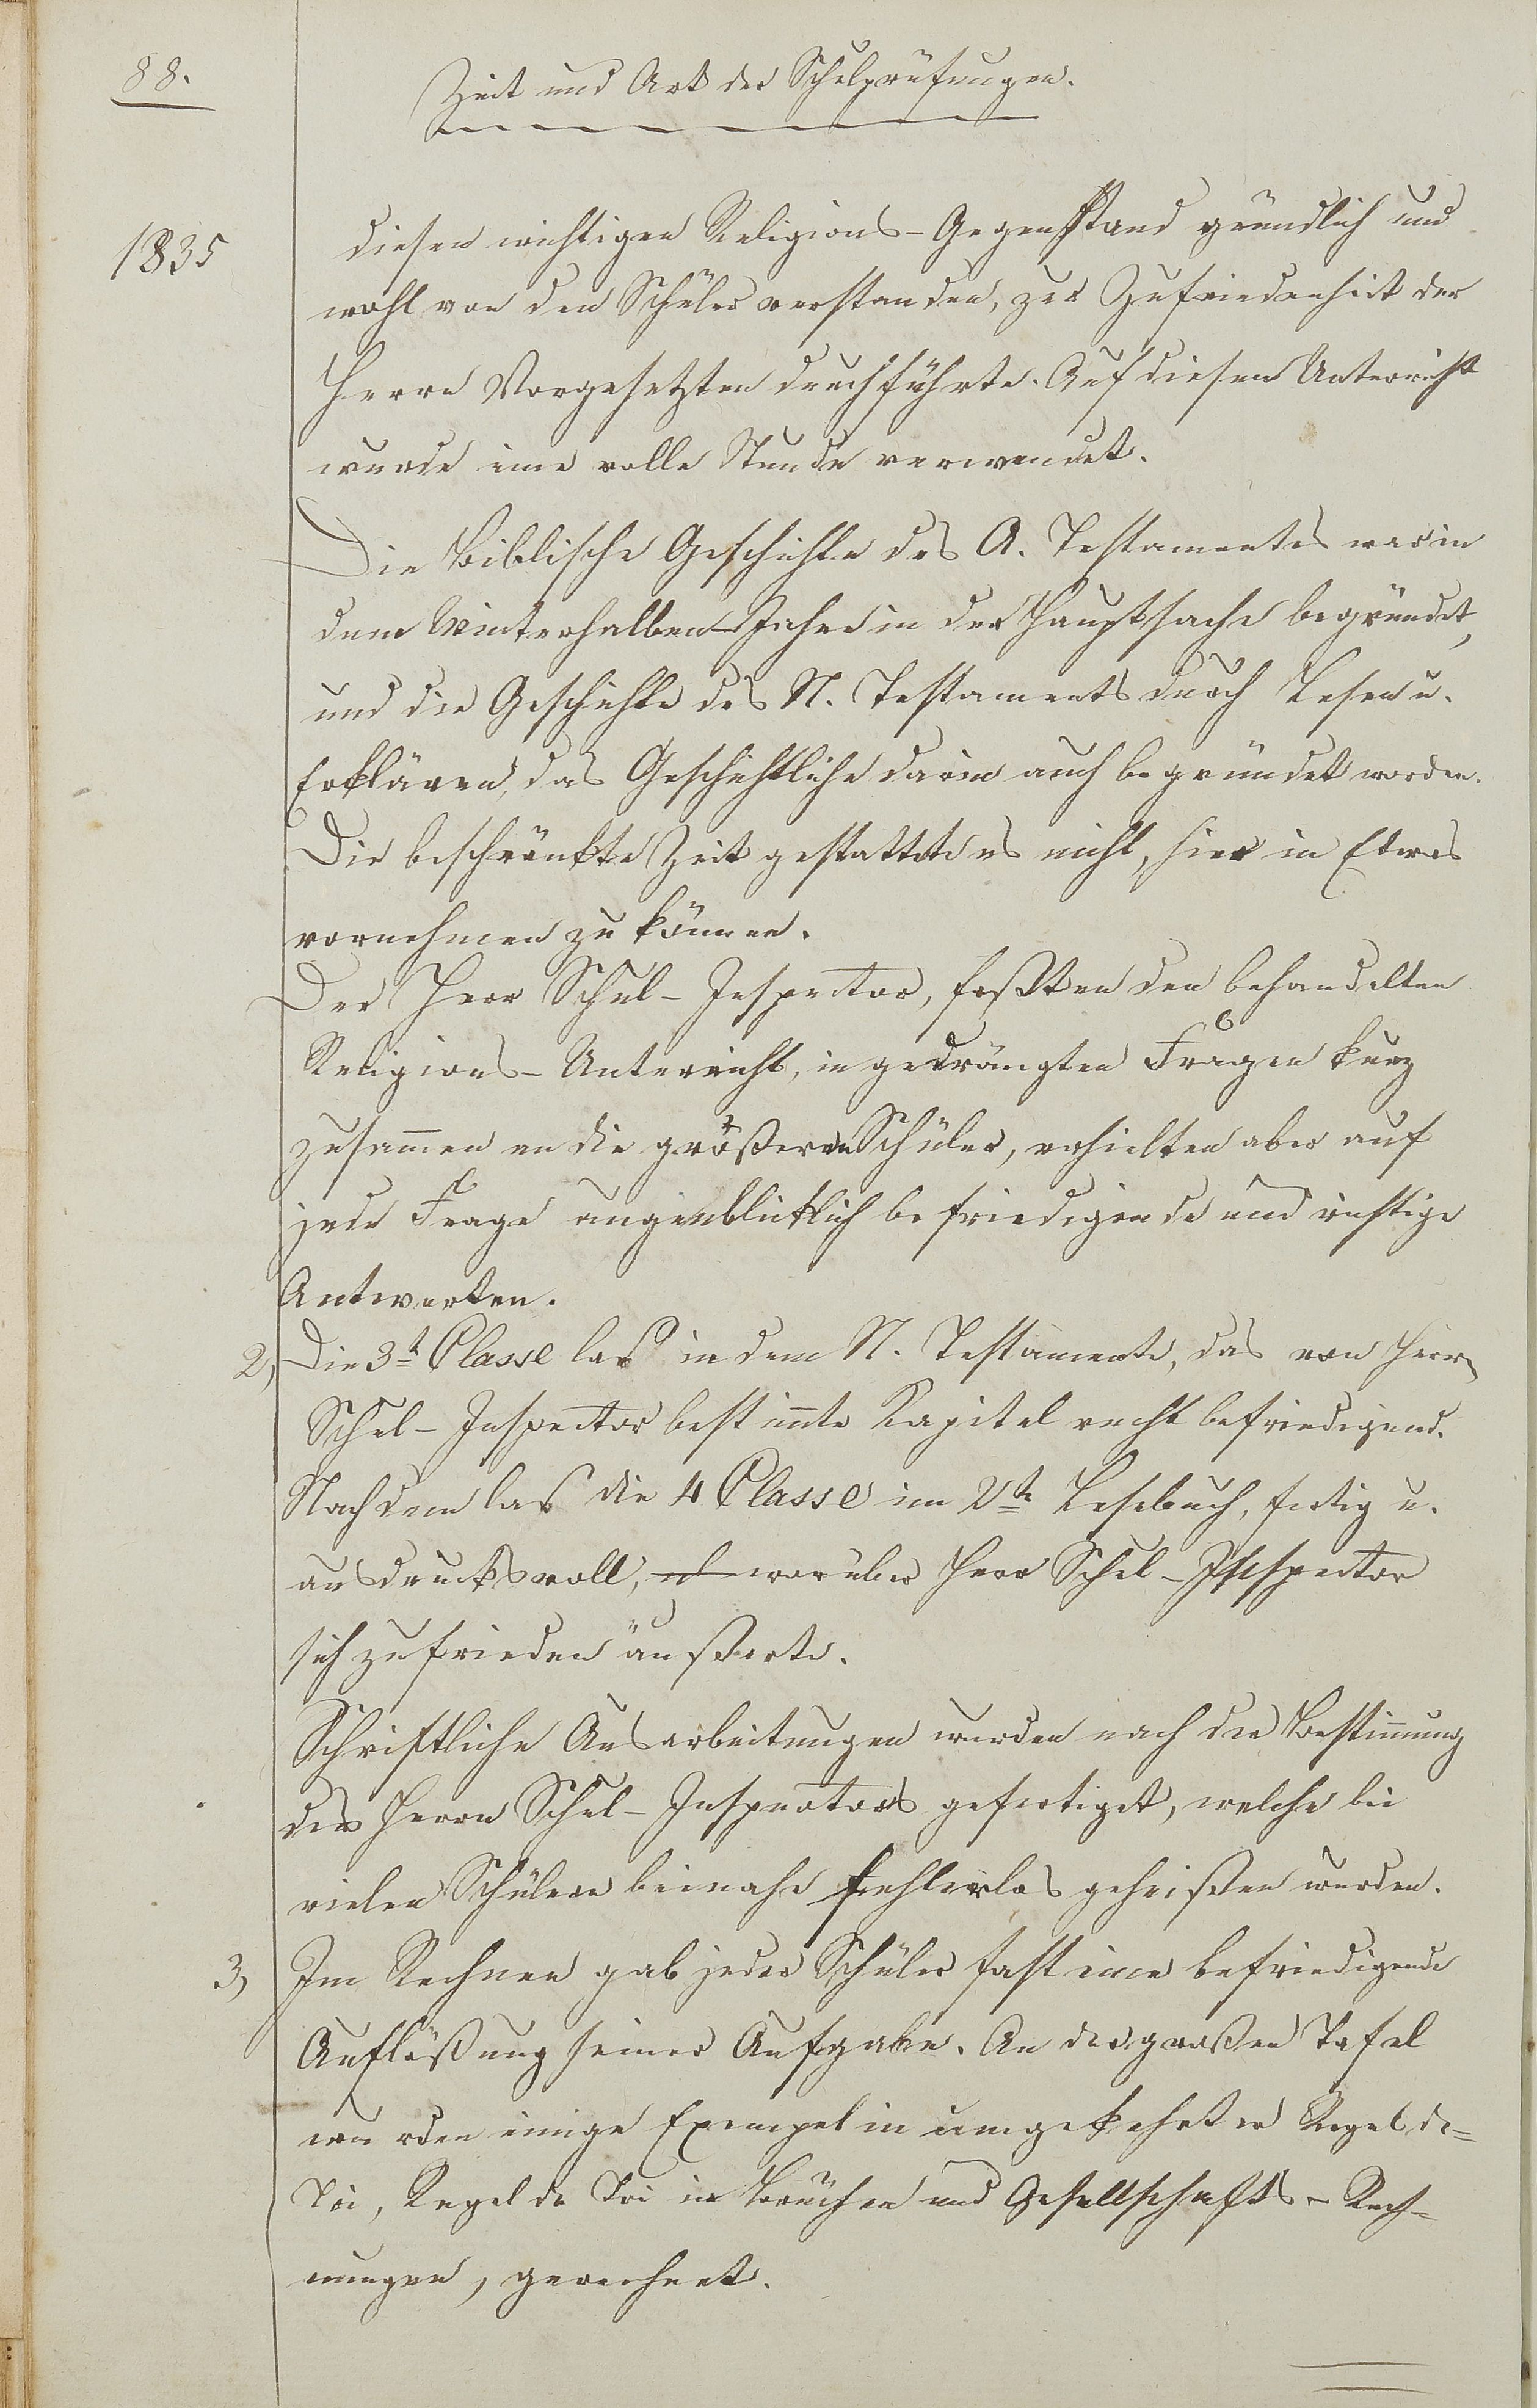 88.
Zeit und Art der Schulprüfungen.
1835
diesen wichtigen Religions-Gegenstand gründlich und
wohl von den Schüler verstanden, zur Zufriedenheit der
Herrn Vorgesetzten durchführte. Auf diesen Unterricht
wurde eine volle Stunde verwendet.
Die Biblische Geschichte des A. Testamentes war in
dem Winterhalben-Jahre in der Hauptsache begründet,
und die Geschichte des N. Testaments durch Lesen u.
Erklären, das Geschichtliche darin auch begründet worden.
Die beschränkte Zeit gestattete es nicht, hier in Etwas
vornehmen zu können.
Der Herr Schul-Inspector, faßten den behandelten
Religions-Unterricht, in gedrängten Fragen kurz
zusam̄en an die größeren Schüler, erhielten aber auf
jede Frage augenblicklich befriedigende und richtige
Antworten.
2, Die 3t Classe las in dem N. Testamente, das von Herrn
Schul-Inspector bestim̄te Kapitel recht befriedigend.
Nachdem las die 4 Classe im 2te Lesebuch, fertig u.
ausdrucksvoll, worüber Herr Schul-Inspector
sich zufrieden äußerte.
Schriftliche Ausarbeitungen wurden nach der Bestim̄ung
des Herrn Schul-Inspectors gefertiget, welche bei
vielen Schülern beinahe fehlerlos geheißen wurden.
3, Im Rechnen gab jeder Schüler fast eine befriedigende
Auflößung seiner Aufgabe. An der großen Tafel
wurden einige Exempel in umgekehrter Regel de=
Tri, Regel de Tri in Brüchen und Gesellschafts-Rech=
nungen, gerechnet.